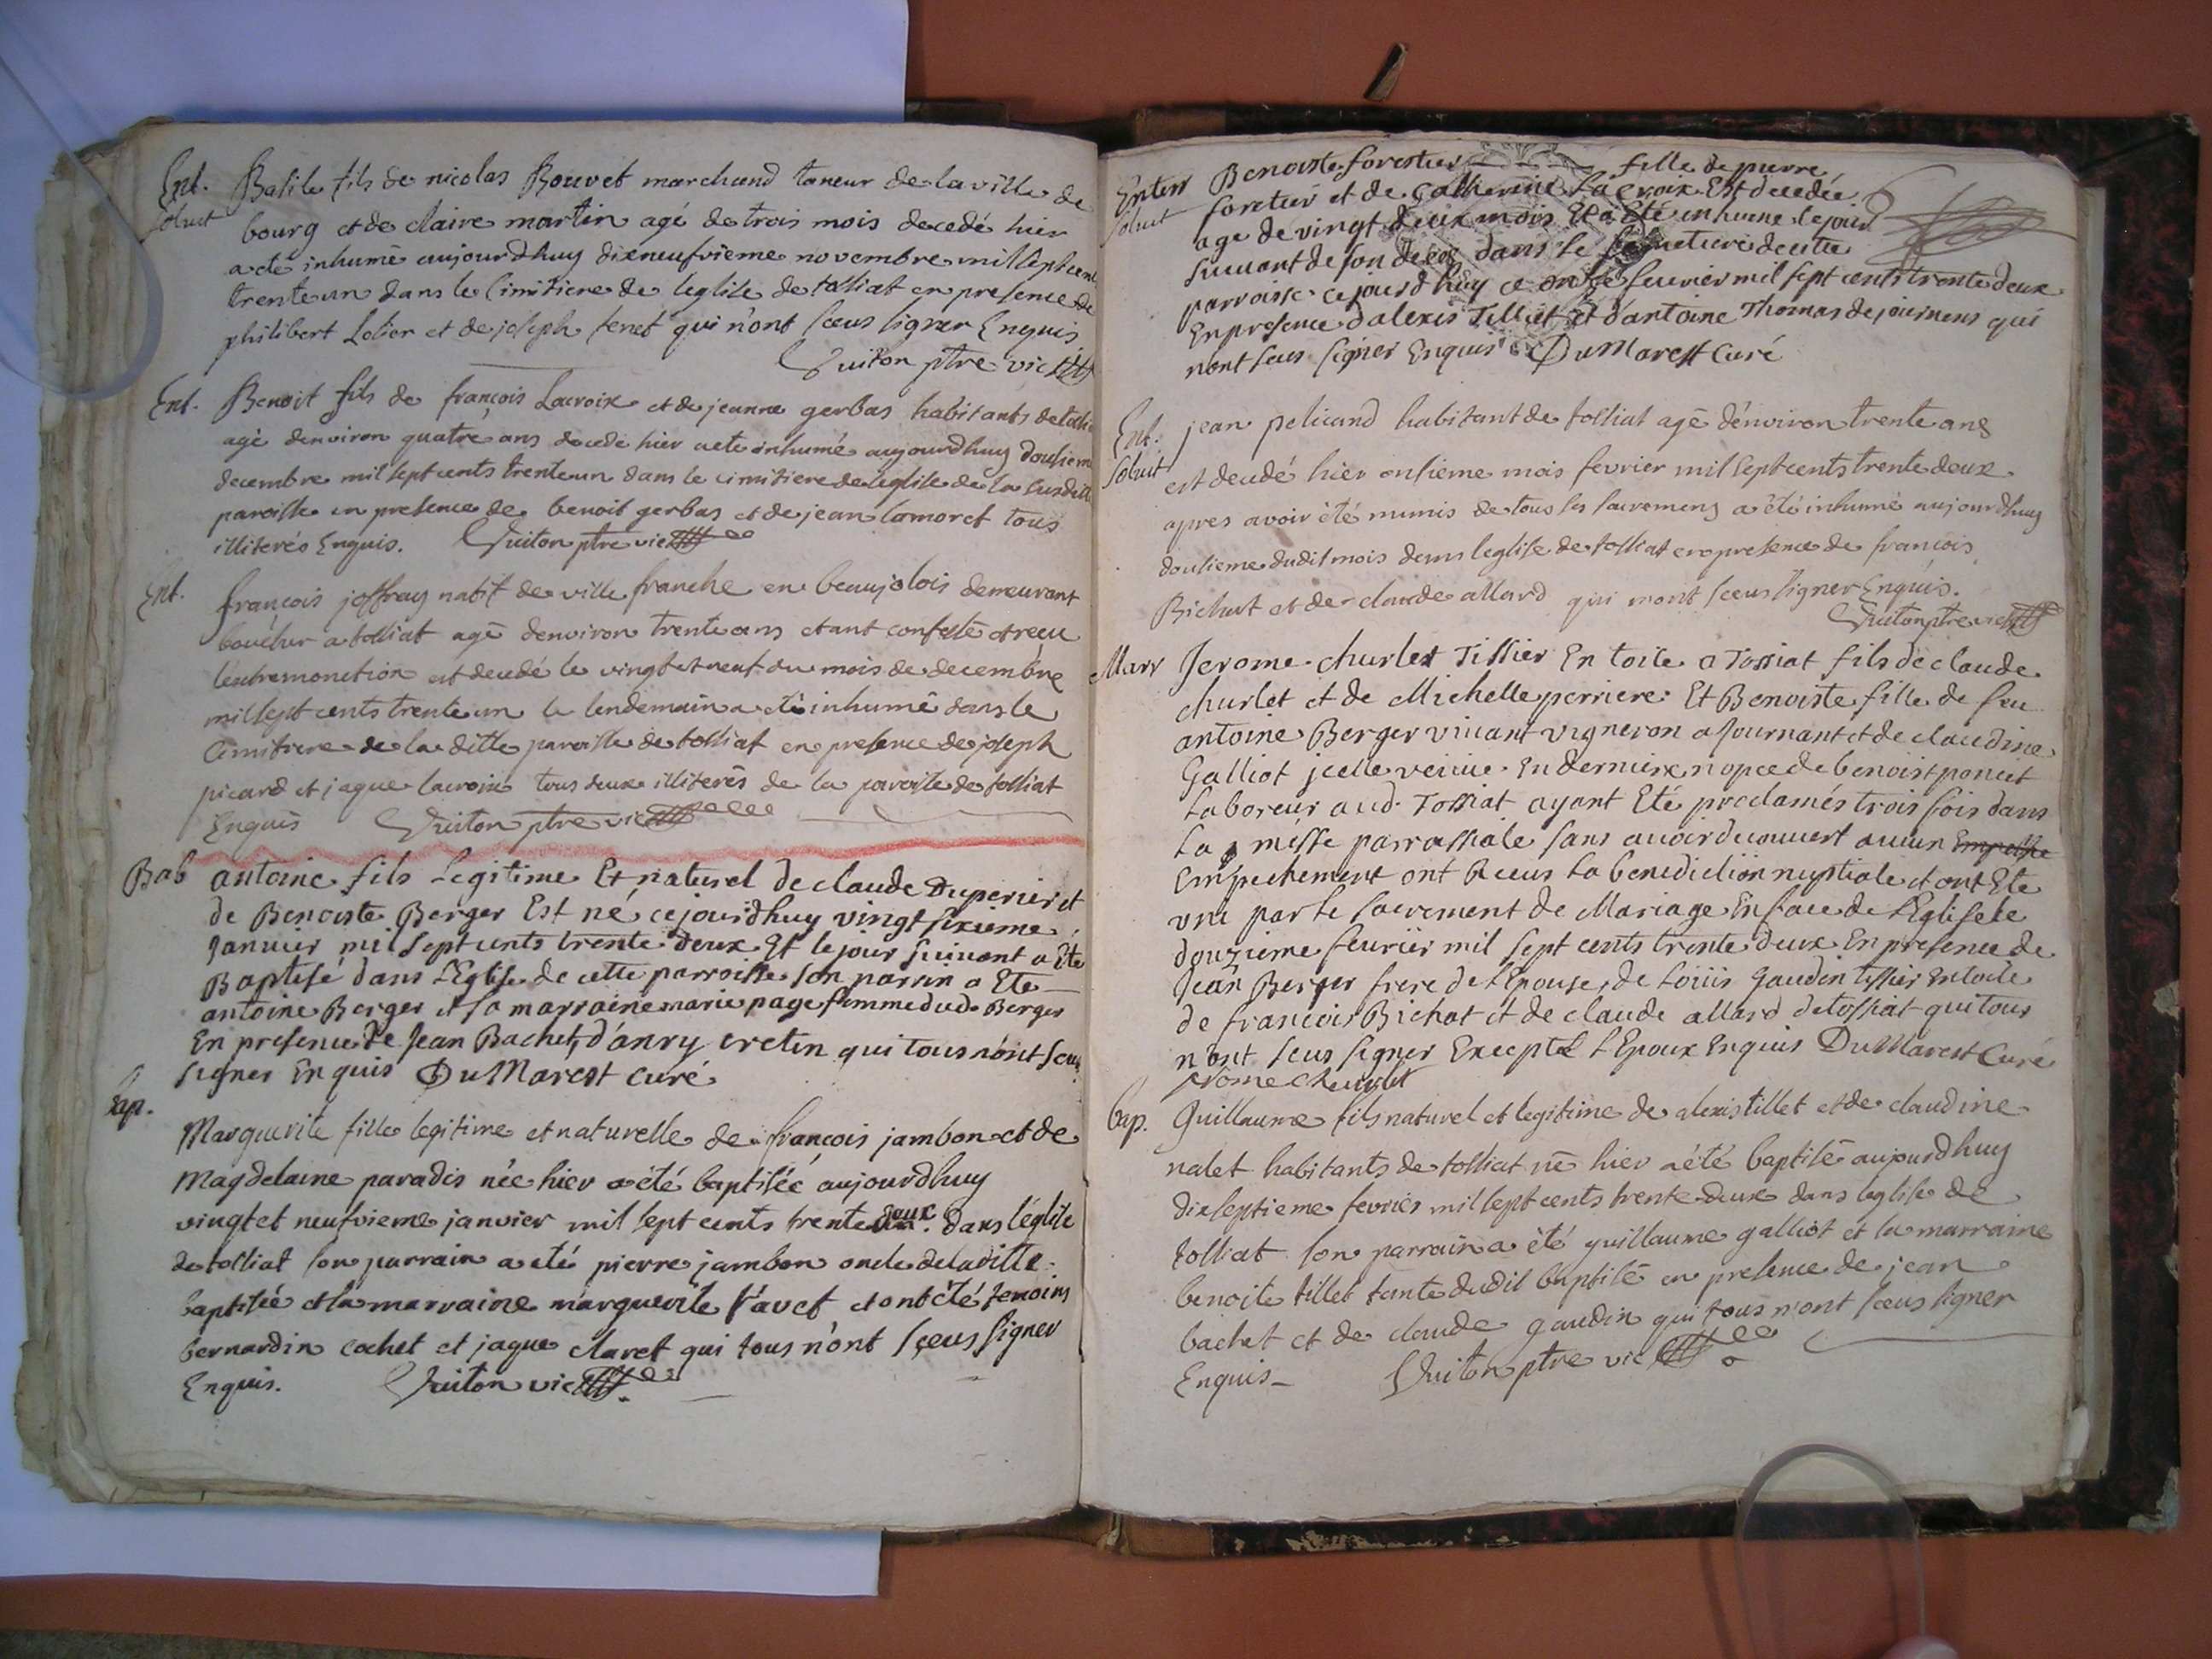 Ent. Basile fils de nicolas Bouvet marchand taneur de la ville de
solvit bourg et de claire martin agé de trois mois decedé hier
a eté inhumé aujourdhuy dixneufvieme novembre mil sept cent
trente un dans le Cimitiere de leglise de tossiat en presence de
philibert et de joseph tenet qui n'ont sceus signer Enquis
Guiton ptre vic
Ent. Benoit fils de françois Lacroix et de jeanne gerbas habitants de
agé denviron quatre ans decedé hier a eté inhumé aujourdhuy
decembre mil sept cents trente un dans le cimitiere de leglise de la susditte
paroisse en presence de benoit gerbas et de jean lamoret tous
illiterés Enquis. Guiton ptre vic
Ent. françois joffray natif de ville franche en beaujolois demeurant
boucher a tossiat agé denviron trente ans etant confessé et reçu
lextremonction est decedé le vingt et neuf du mois de decembre
mil sept cents trente un le lendemain a eté inhumé dans le
Cimitiere de la ditte paroisse de tossiat en presence de joseph
picard et jaque lacroix tous deux illiterés de la paroisse de tossiat
Enquis Guiton ptre vic
Bab antoine fils Legitime Et naturel de claude Duperier et
de Benoiste Berger Est né cejourdhuy vingt sixieme
Janvier mil sept cents trente deux Et le jour suivant a Ete
Baptisé dans L'Eglise de cette parroisse son parrin a Ete
antoine Berger et sa marraine marie page femme dud. Berger
En presence de Jean Bachet, d'anry cretin qui tous n'ont sceu
signer Enquis DuMarest Curé
Bap. Marguerite fille legitime et naturelle de françois jambon et de
Magdelaine paradis née hier a été baptisée aujourdhuy
vingt et neufvieme janvier mil sept cents trente deux. Dans l'église
de tossiat son parrain a eté pierre jambon oncle de la ditte
baptisée et la marraine marguerite et ont été temoins
bernardin cochet et jaque claret qui tous n'ont sçeus signer
Enquis. Guiton vic
Enterr Benoiste forestier fille de pierre
solvit foretier et de Catherine Lacroix Est decedée
age de vingt deux mois Et a Eté inhumé le jour
suivant de son deces dans le de cette
parroisse cejourdhuy ce onze feurier mil sept cents trente deux
En presence d'alexis Tilliet et d'antoine Thomas de journans qui
n'ont seus signer Enquis DuMarest Curé
Ent. jean pelicand habitant de tossiat agé d'environ trente ans
solvit est decedé hier onsieme mois fevrier mil sept cents trente deux
apres avoir été munis de tous les sacremens a été inhumé aujourdhuy
dousieme dudit mois dans leglise de tossiat en presence de françois
Bichat et de claude allard qui n'ont sceus signer Enquis.
Guiton ptre vic
Marr Jerome churlet Tissier En toile a Tossiat fils de claude
churlet et de Michelle perriere Et Benoiste fille de feu
antoine Berger vivant vigneron a Journant et de claudine
Galliot icelle veuve En derniere nopce de benoist poncet
Laboreur aud. Tossiat ayant Eté proclamés trois fois dans
La messe parrassiale sans auoir decouuert aucun Empeche
Empechement ont Receus la benediction nuptiale et ont Ete
vni par le sacrement de Mariage En face de L'Eglise le
douzieme feurier mil sept cents trente deux En presence de
Jean Berger frere de L'Epouse, de Louis Gaudin tissier En toile
de francois Bichat et de claude allard de tossiat qui tous
n'ont seus signer Excepté L'Epoux Enquis DuMarest Curé
Bap. Guillaume fils naturel et legitime de alexis tillet et de claudine
nalet habitants de tossiat né hier a été baptisé aujourdhuy
dixseptieme fevrier mil sept cents trente deux dans leglise de
tossiat son parrain a été guillaume galliot et la marraine
benoite tillet tante dudit baptisé en presence de jean
bachet et de claude gaudin qui tous n'ont sceus signer
Enquis Guiton ptre vic